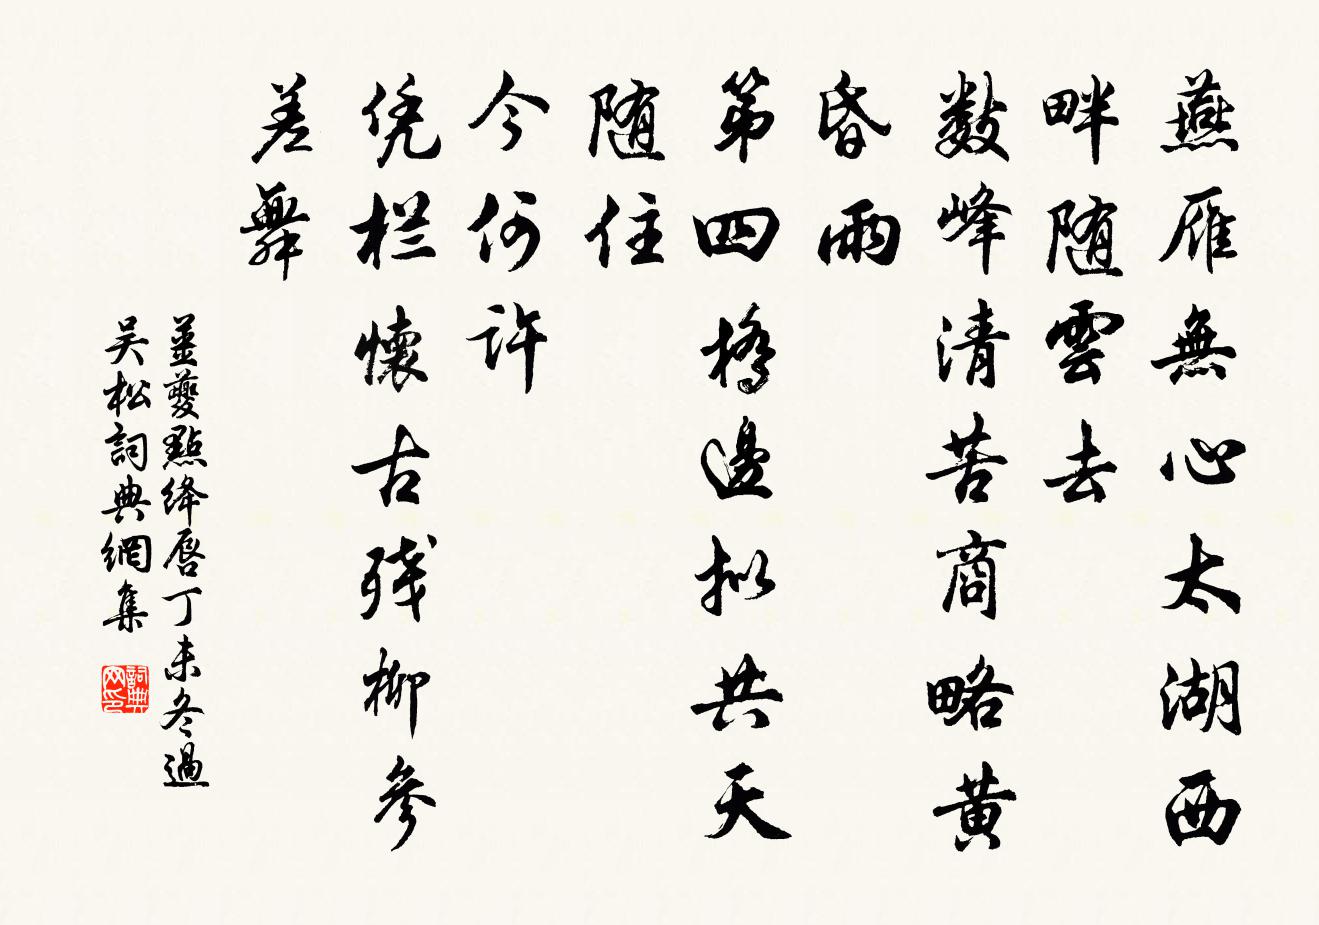 燕雁無心太湖西
畔随雲去
数峰清苦商略黄
昏雨
第四橋邊拟共天
随住
今何许
凭栏懷古残柳參
差舞
姜夔點绛唇丁未冬過
吴松詞典網集
詞典网印